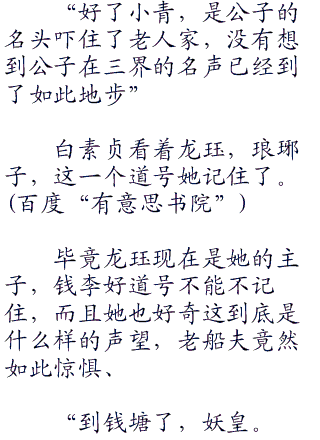 “好了小青，是公子的
名头吓住了老人家，没有想
到公子在三界的名声已经到
了如此地步”
白素贞看着龙珏，琅琊
子，这一个道号她记住了。
(百度“有意思书院”)
毕竟龙珏现在是她的主
子，钱李好道号不能不记
住，而且她也好奇这到底是
什么样的声望，老船夫竟然
如此惊惧、
“到钱塘了，妖皇。